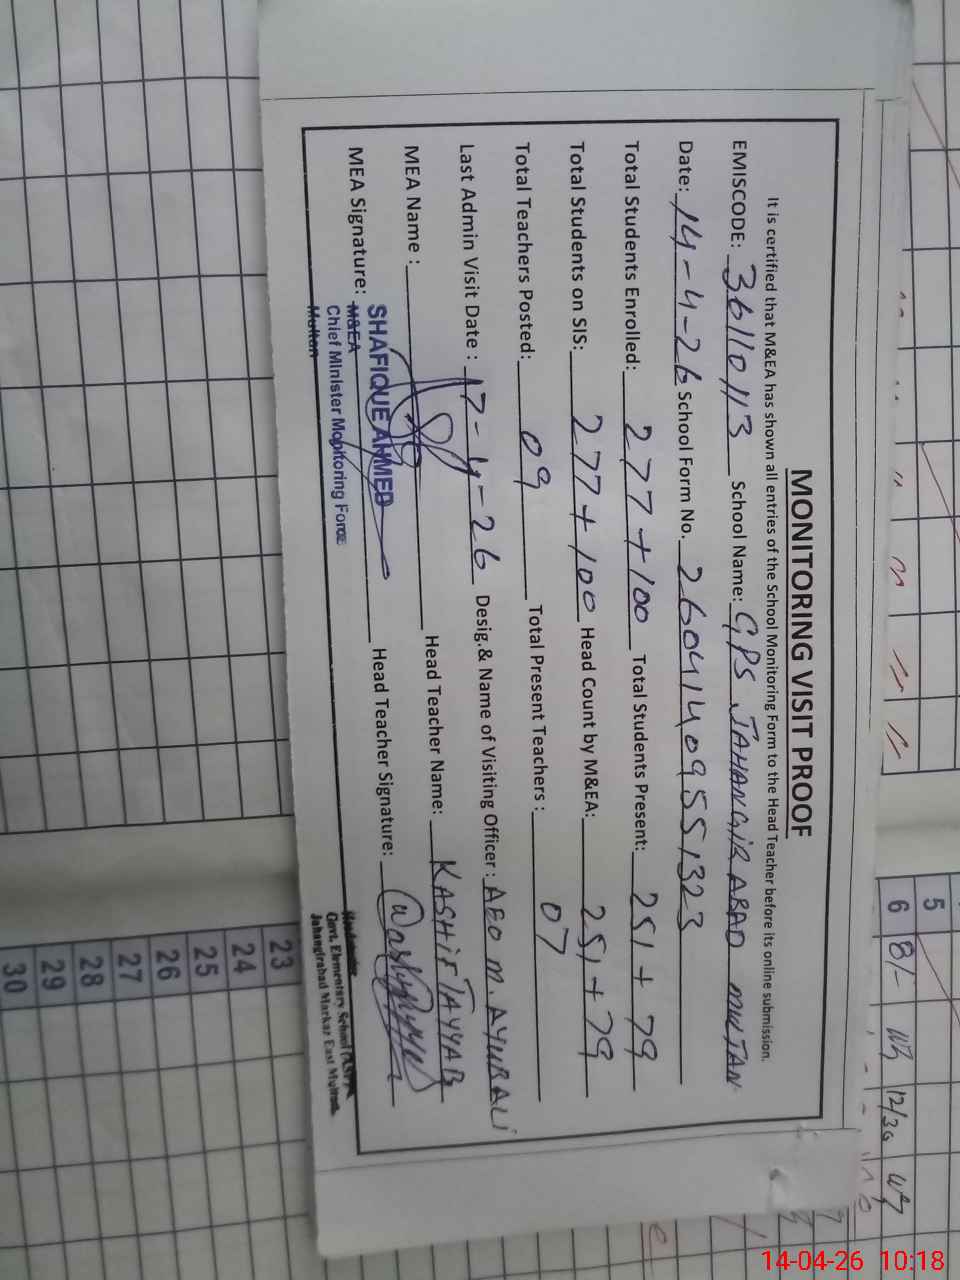 MONITORING VISIT PROOF
It is certified that M&EA has shown all entries of the School Monitoring Form to the Head Teacher before its online submission.
EMISCODE: 36110113 School Name: GPS JAHANGIR ABAD MULTAN
Date: 14-4-26 School Form No. 26041409551323
Total Students Enrolled: 277+100 Total Students Present: 251+79
Total Students on SIS: 277+100 Head Count by M&EA: 251+79
Total Teachers Posted: 09 Total Present Teachers : 07
Last Admin Visit Date : 17-4-26 Desig.& Name of Visiting Officer : AEO M. AYUB ALI
MEA Name : Head Teacher Name: KASHIF TAYYAB
MEA Signature: Head Teacher Signature:
SHAFIQUE AHMED
M&EA
Chief Minister Monitoring Force
Multan
Govt. Elementary School
Jahangirabad Markaz East Multan
5
6 8/- 12/30
23
24
25
26
27
28
29
30
14-04-26 10:18